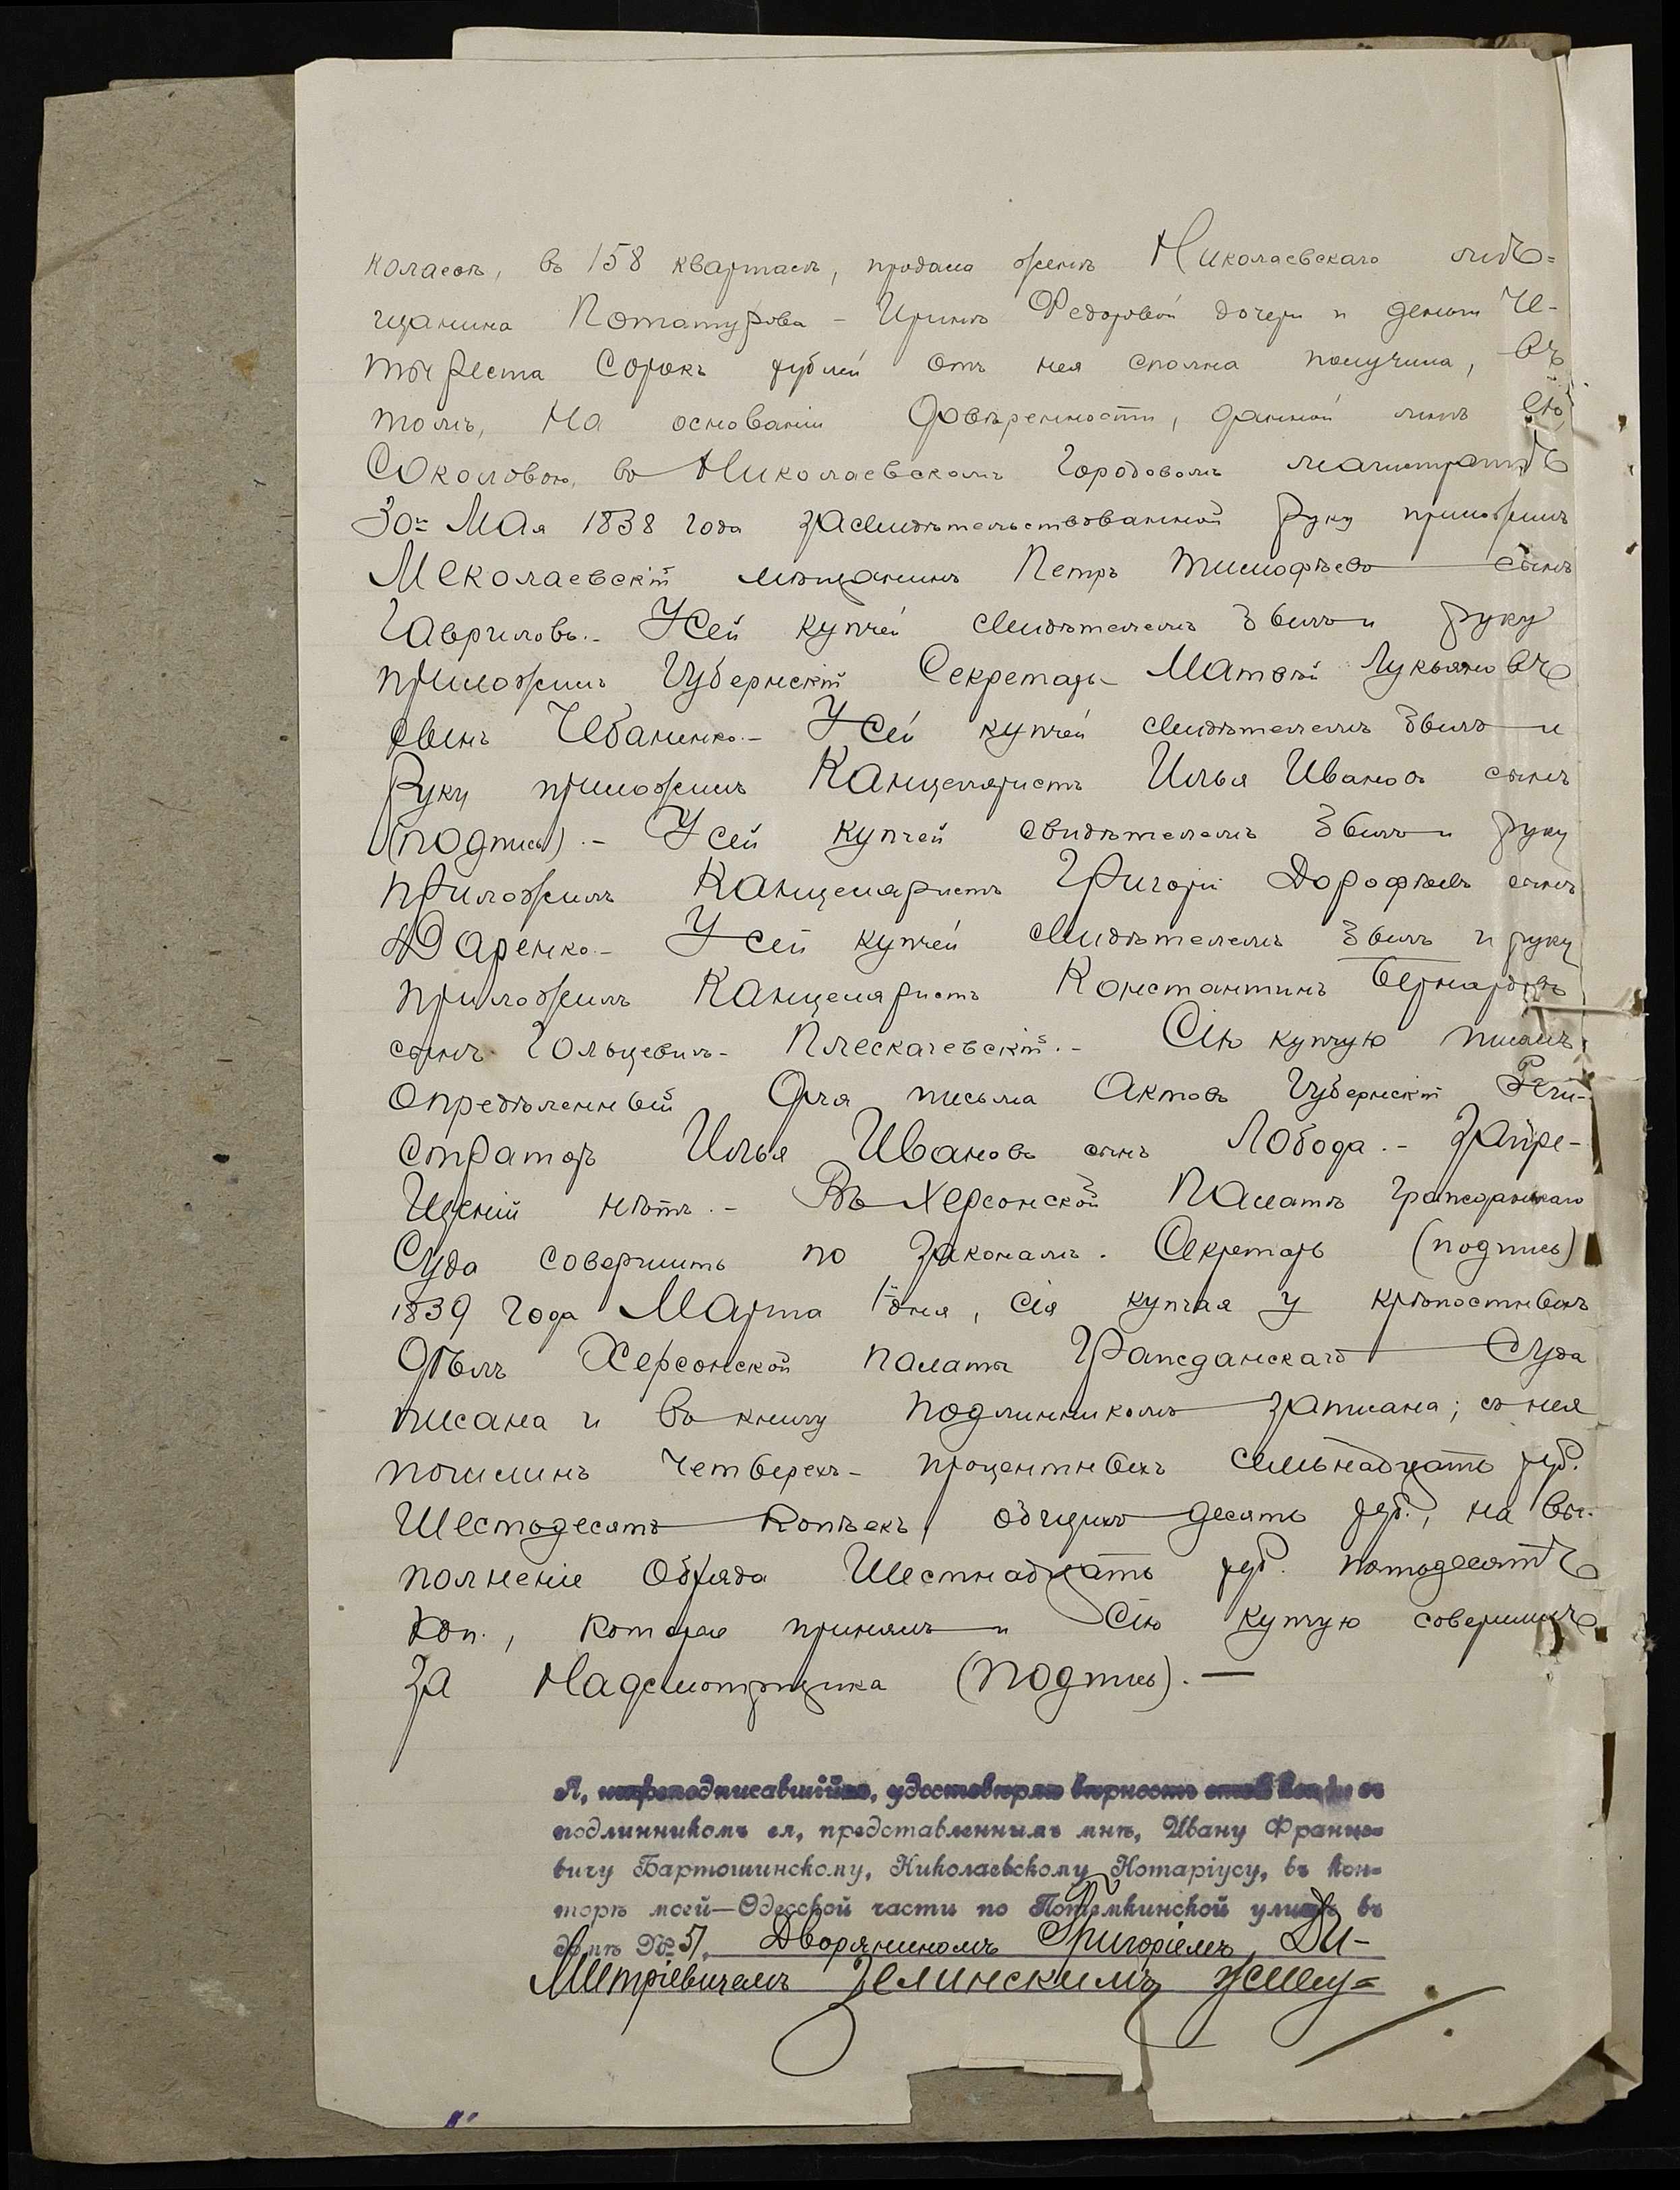 колаевѣ, въ 158 кварталѣ, продала женѣ Николаевскаго мѣ-
щанина Потатурова – Иринѣ Федоровой дочери и деньги че-
тыреста сорокъ рублей отъ нея сполна получила, въ
томъ, на основаніи довѣренности, данной мнѣ ею,
Соколовою, въ Николаевскомъ Городовомъ магистратѣ
30го Мая 1838 года засвидѣтельствованной руку приложилъ
Николаевскій мѣщанинъ Петръ Тимофѣевъ сынъ
Гавриловъ.– У сей купчей свидѣтелемъ былъ и руку
приложилъ Губернскій Секретарь Матвѣй Лукьяновъ
сынъ Чебаненко.– У сей купчей свидѣтелемъ былъ и
руку приложилъ Канцеляристъ Илья Ивановъ сынъ
(подпись).– У сей купчей свидѣтелемъ былъ и руку
приложилъ Канцеляристъ Григорій Дорофѣевъ сынъ
Даренко.– У сей купчей свидѣтелемъ былъ и руку
приложилъ Канцеляристъ Константинъ Бернардовъ
сынъ Гольцевилъ– Плескачевскій.– Сію купчую писалъ
опредѣленный для письма актовъ Губернскій Реги-
страторъ Илья Ивановъ сынъ Лобода.– Запре-
щеній нѣтъ.– Въ Херсонской Палатѣ Гражданскаго
Суда совершить по законамъ. Секретарь (подпись)
1839 года Марта 1 дня, сія купчая у крѣпостныхъ
дѣлъ Херсонской палаты Гражданскаго Суда
писана и въ книгу подлинникомъ записана; съ нея
пошлинъ четверехъ– процентныхъ семьнадцать руб.
шестьдесятъ копѣекъ, общихъ десять руб., на вы-
полненіе обряда шестнадцать руб. пятьдесятъ
коп., которые принялъ и сію купчую совершилъ
За Надсмотрщика (подпись).—
Я, нижеподписавшійся, удостовѣряю вѣрность этой копіи съ
подлинникомъ ея, представленнымъ мнѣ, Ивану Францe-
вичу Бартошинскому, Николаевскому Нотаріусу, въ кон-
торѣ моей—Одесской части по Потемкинской улицѣ въ
домѣ № 51, Дворяниномъ Григоріемъ Ди-
митріевичемъ Зелинскимъ, живу-